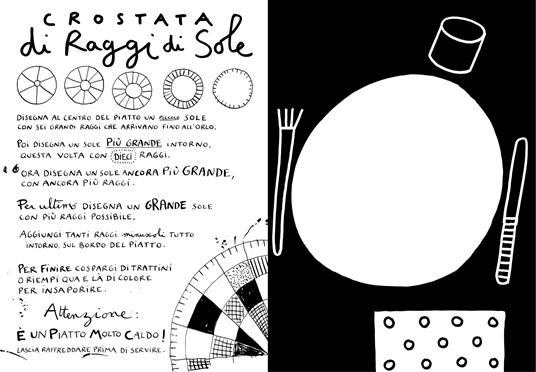 CROSTATA
di Raggi di Sole
DISEGNA AL CENTRO DEL PIATTO UN PICCOLO SOLE
CON SEI GRANDI RAGGI CHE ARRIVANO FINO ALL'ORLO.
POI DISEGNA UN SOLE PIÙ GRANDE INTORNO,
QUESTA VOLTA CON DIECI RAGGI.
ORA DISEGNA UN SOLE ANCORA PIÙ GRANDE,
CON ANCORA PIÙ RAGGI.
PER ultimo DISEGNA UN GRANDE SOLE
CON PIÙ RAGGI POSSIBILE.
AGGIUNGI TANTI RAGGI minuscoli TUTTO
INTORNO, SUL BORDO DEL PIATTO.
PER FINIRE COSPARGI DI TRATTINI
O RIEMPI QUA E LÀ DI COLORE
PER INSAPORIRE.
Attenzione:
È UN PIATTO MOLTO CALDO!
LASCIA RAFFREDDARE PRIMA DI SERVIRE.